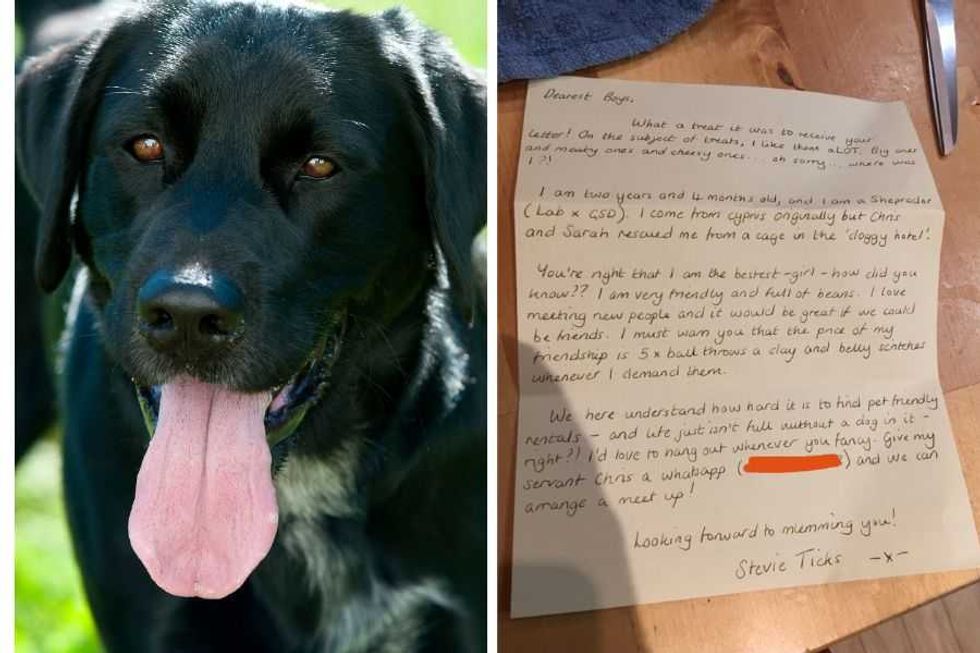 Dearest Boys,
What a treat it was to receive your
letter! On the subject of treats, I like them aLOT. Big ones
and meaty ones and cheesy ones.... oh sorry... where was
I?!
I am two years and 4 months old, and I am a Sheprador
(Lab x GSD). I come from Cyprus originally but Chris
and Sarah rescued me from a cage in the 'doggy hotel'.
You're right that I am the bestest-girl - how did you
know?? I am very friendly and full of beans. I love
meeting new people and it would be great if we could
be friends. I must warn you that the price of my
friendship is 5 x ball throws a day and belly scritches
whenever I demand them.
We here understand how hard it is to find pet friendly
rentals - and life just isn't full without a dog in it -
right?! I'd love to hang out whenever you fancy. Give my
servant Chris a whatsapp ( ) and we can
arrange a meet up!
Looking forward to mlemming you!
Stevie Ticks -x-